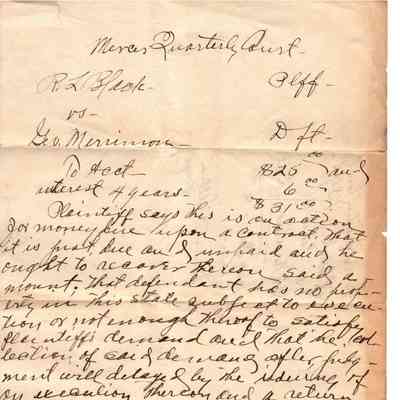 Mercer Quarterly Court-
R L Black- Plff-
vs-
Geo. Merrimon- Dft-
To Acct- $25 00 and
interest 4 years- 6 00
$31 00
Plaintiff says this is an action
for money due upon a contract, that
it is past due and unpaid and he
ought to recover thereon said a-
mount. That defendant has no prop-
erty in this State subject to execu-
tion or not enough thereof to satisfy
plaintiff's demand and that the col-
lection of said demand after judg-
ment will delayed by the issuing of
an execution thereon and a return